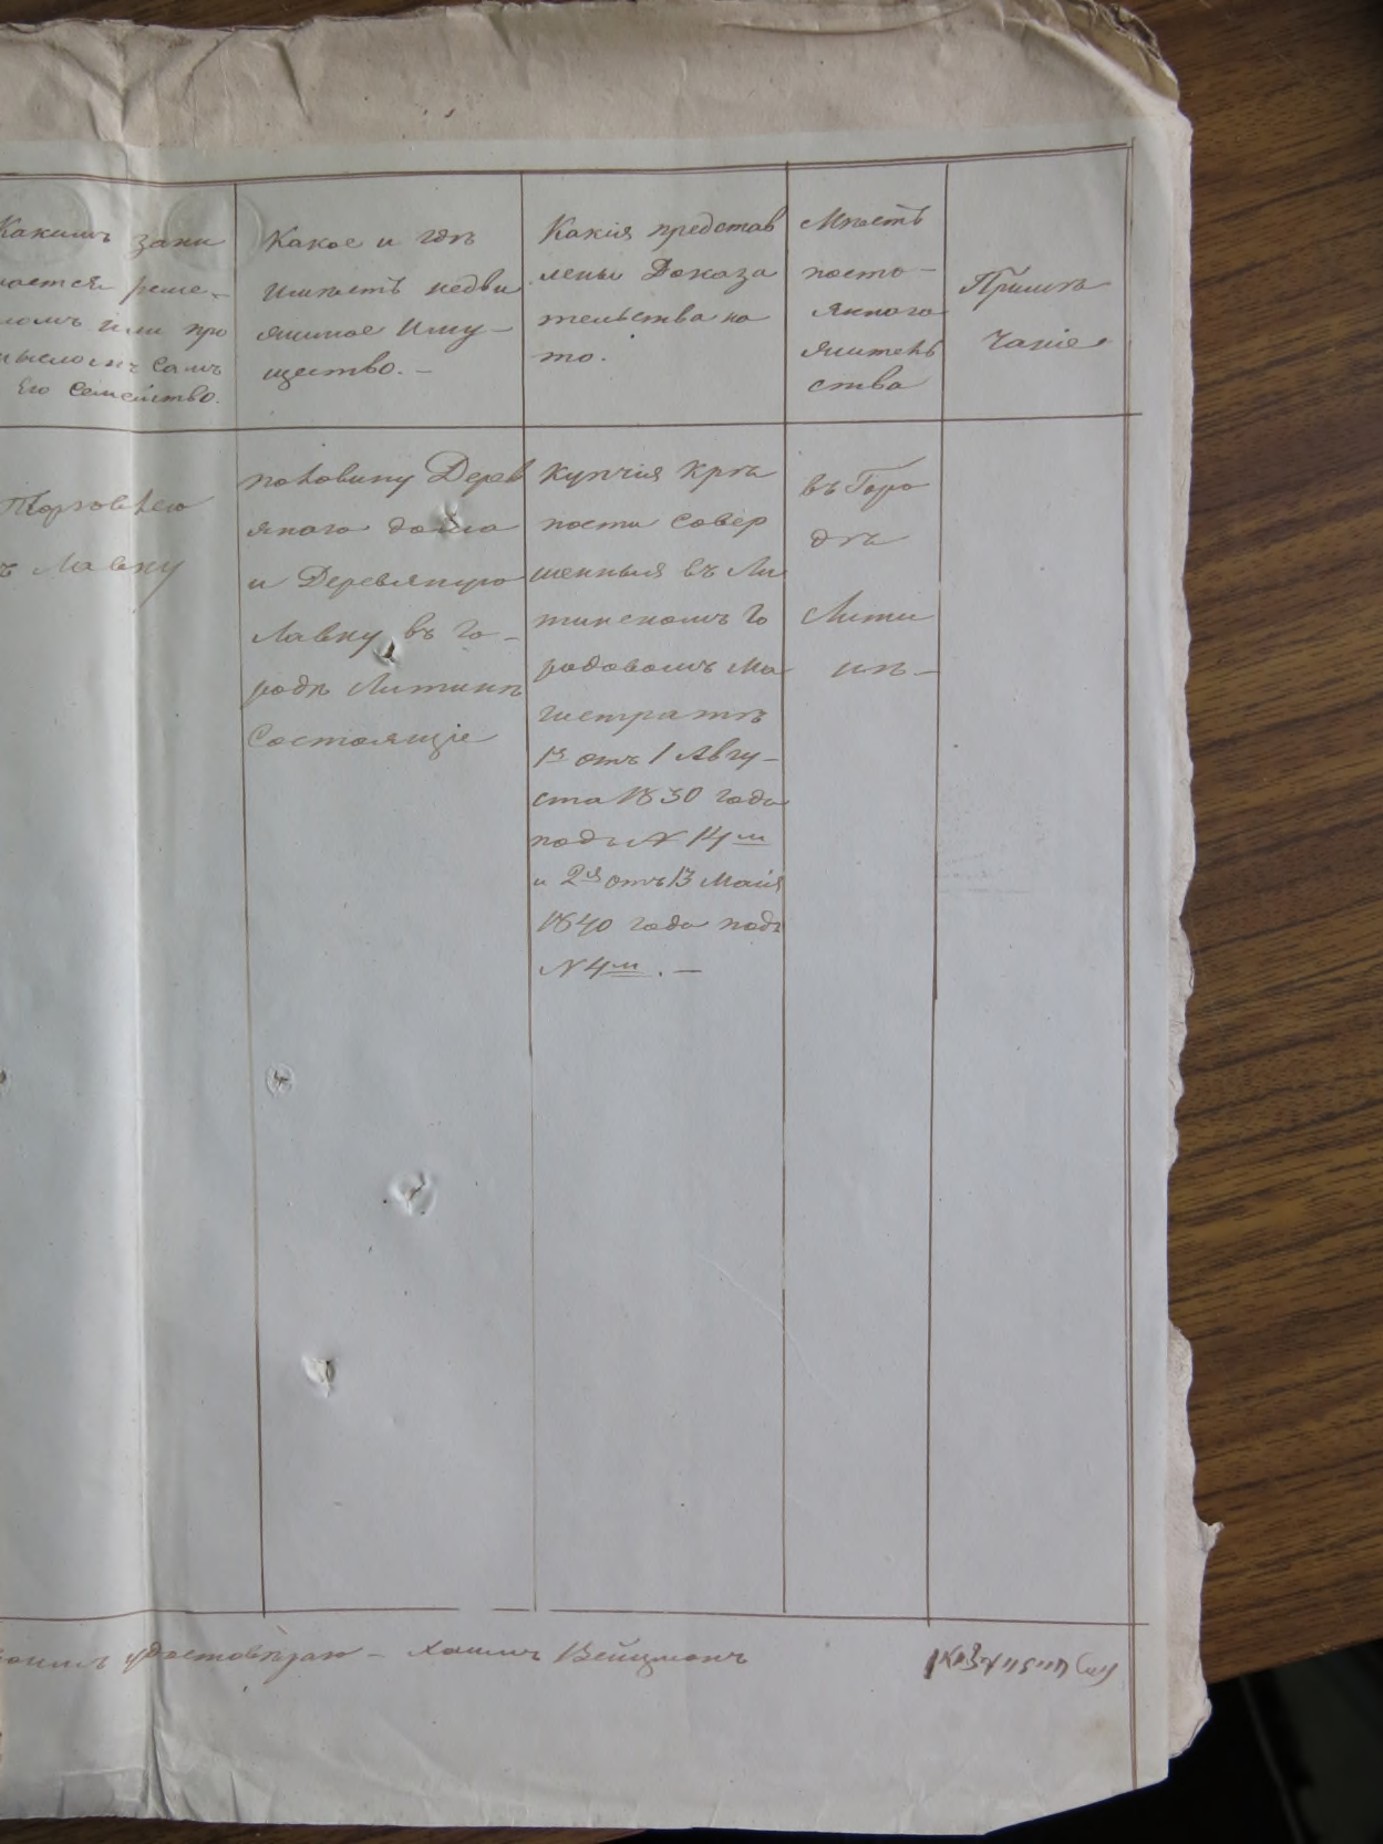 Какимъ зани
мается реме-
ломъ или про
мысломъ Самъ
Его Семейство.
Какое и гдѣ
имѣетъ недви
жимое Иму-
щество. -
Какія представ
лены Доказа
тельства на
то.
Мѣсто
посто-
яннаго
жительь
ства
Примѣ
чаніе
Торговлею
ъ Лавку
половину Дерев
янаго дома
и Деревянную
Лавку въ го-
родѣ Литинѣ
Состоящіе
Купчія Крѣ
пости Совер
шенныя въ Ли
тинскомъ Го
родовомъ Ма
гистратѣ
1я отъ 1 Авгу-
ста 1830 года
подъ N 14м
и 2я отъ 13 Майя
1840 года подъ
N 4м. -
въ Горо
дѣ
Лити
нѣ -
удостовѣряю - Хаимъ Вейцманъ
חיים ווייצמאן